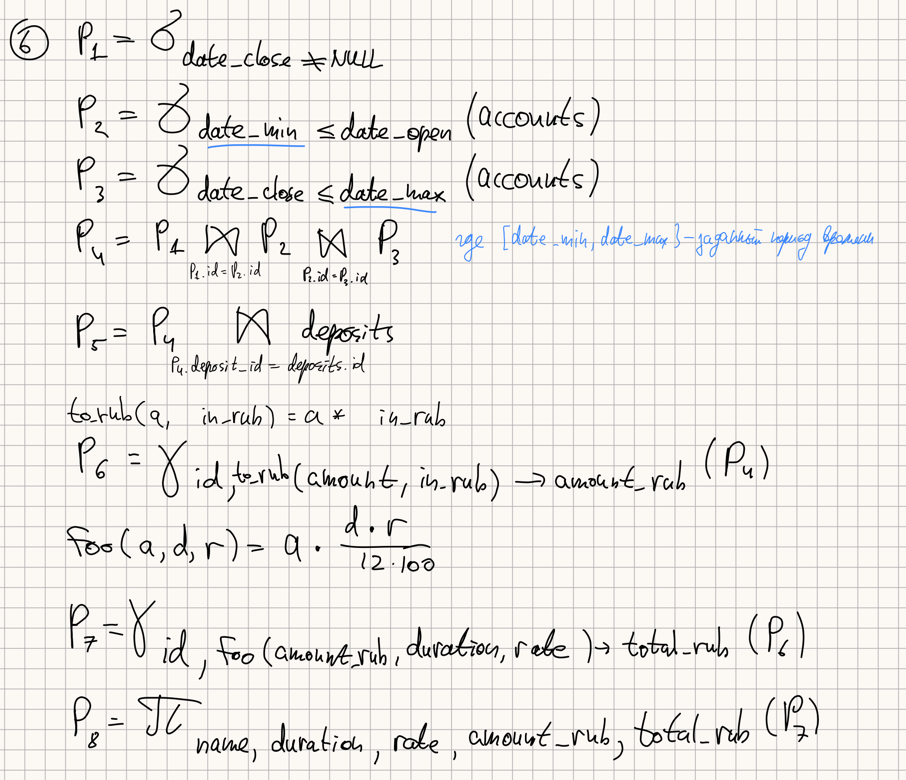 ⑥ P₁ = σ date_close ≠ NULL
P₂ = σ date_min ≤ date_open (accounts)
P₃ = σ date_close ≤ date_max (accounts)
P₄ = P₁ ⋈ P₁.id=P₂.id P₂ ⋈ P₂.id=P₃.id P₃ где [date_min, date_max] - заданный период времени
P₅ = P₄ ⋈ P₄.deposit_id = deposits.id deposits
to_rub(a, in_rub) = a * in_rub
P₆ = γ id, to_rub(amount, in_rub) → amount_rub (P₄)
foo(a, d, r) = a · d · r / 12 · 100
P₇ = γ id, foo(amount_rub, duration, rate) → total_rub (P₆)
P₈ = π name, duration, rate, amount_rub, total_rub (P₇)